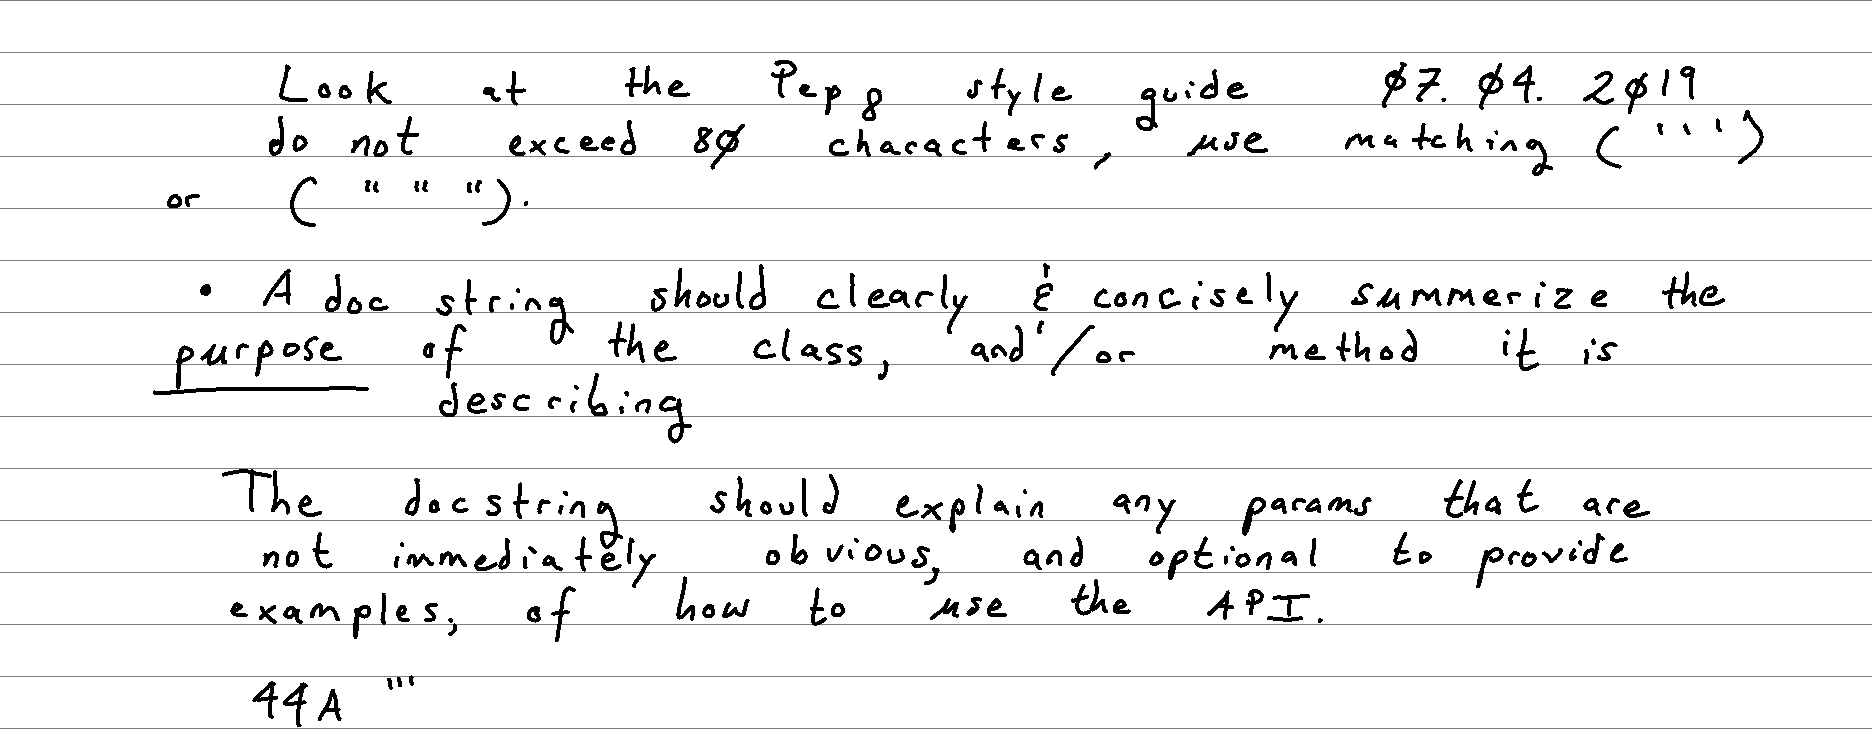 Look at the Pep 8 style guide 07.04.2019
do not exceed 80 characters, use matching (''')
or (" " ").
• A doc string should clearly & concisely summerize the
purpose of the class, and/or method it is
describing
The docstring should explain any params that are
not immediately obvious, and optional to provide
examples, of how to use the API.
44A '''